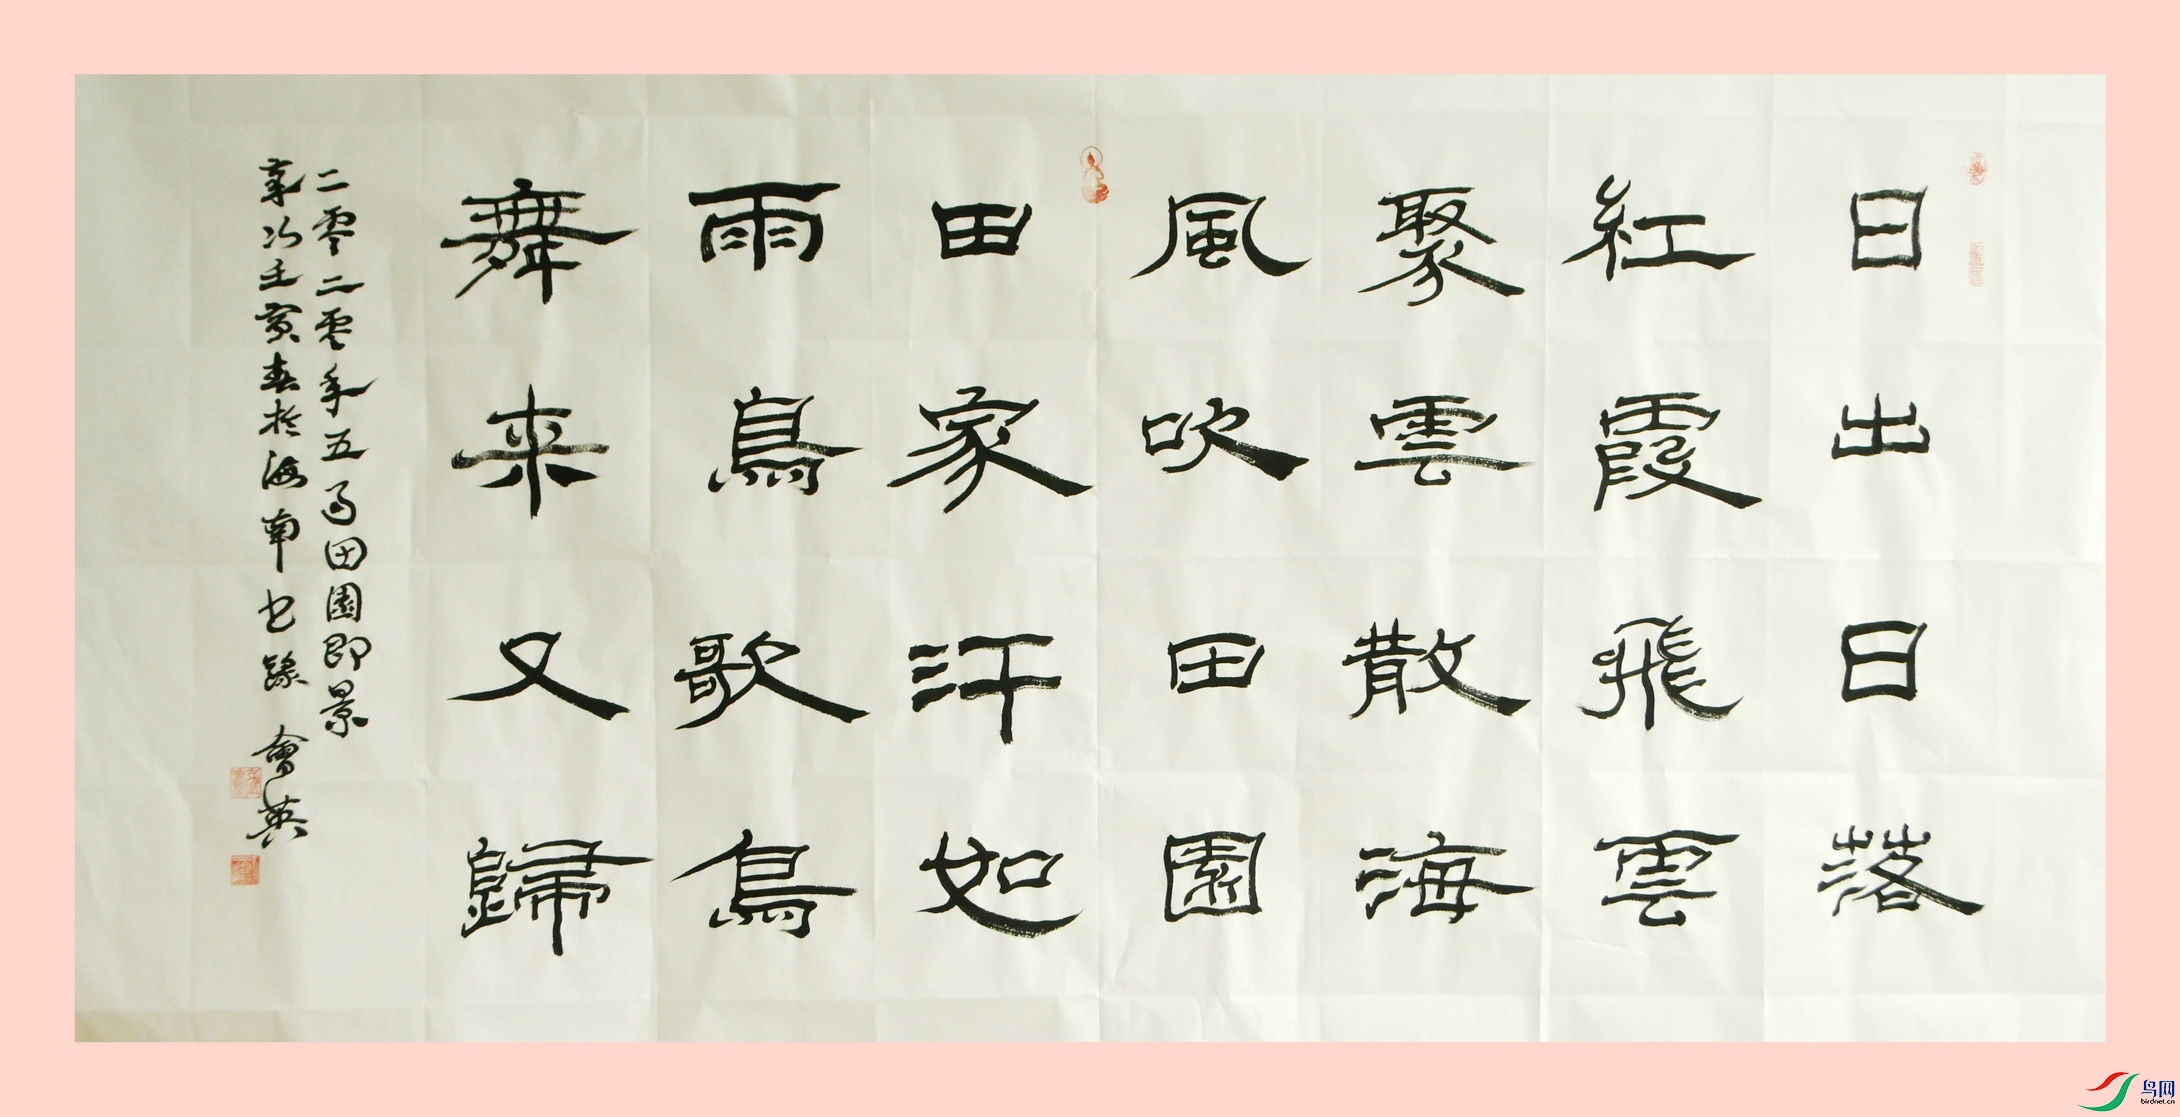 日出日落
紅霞飛雲
聚雲散海
風吹田園
田家汗如
雨鳥歌鳥
舞来又歸
二零二零年五月田園即景
歲次壬寅春於海南七隸會英
鸟网
birdnet.cn